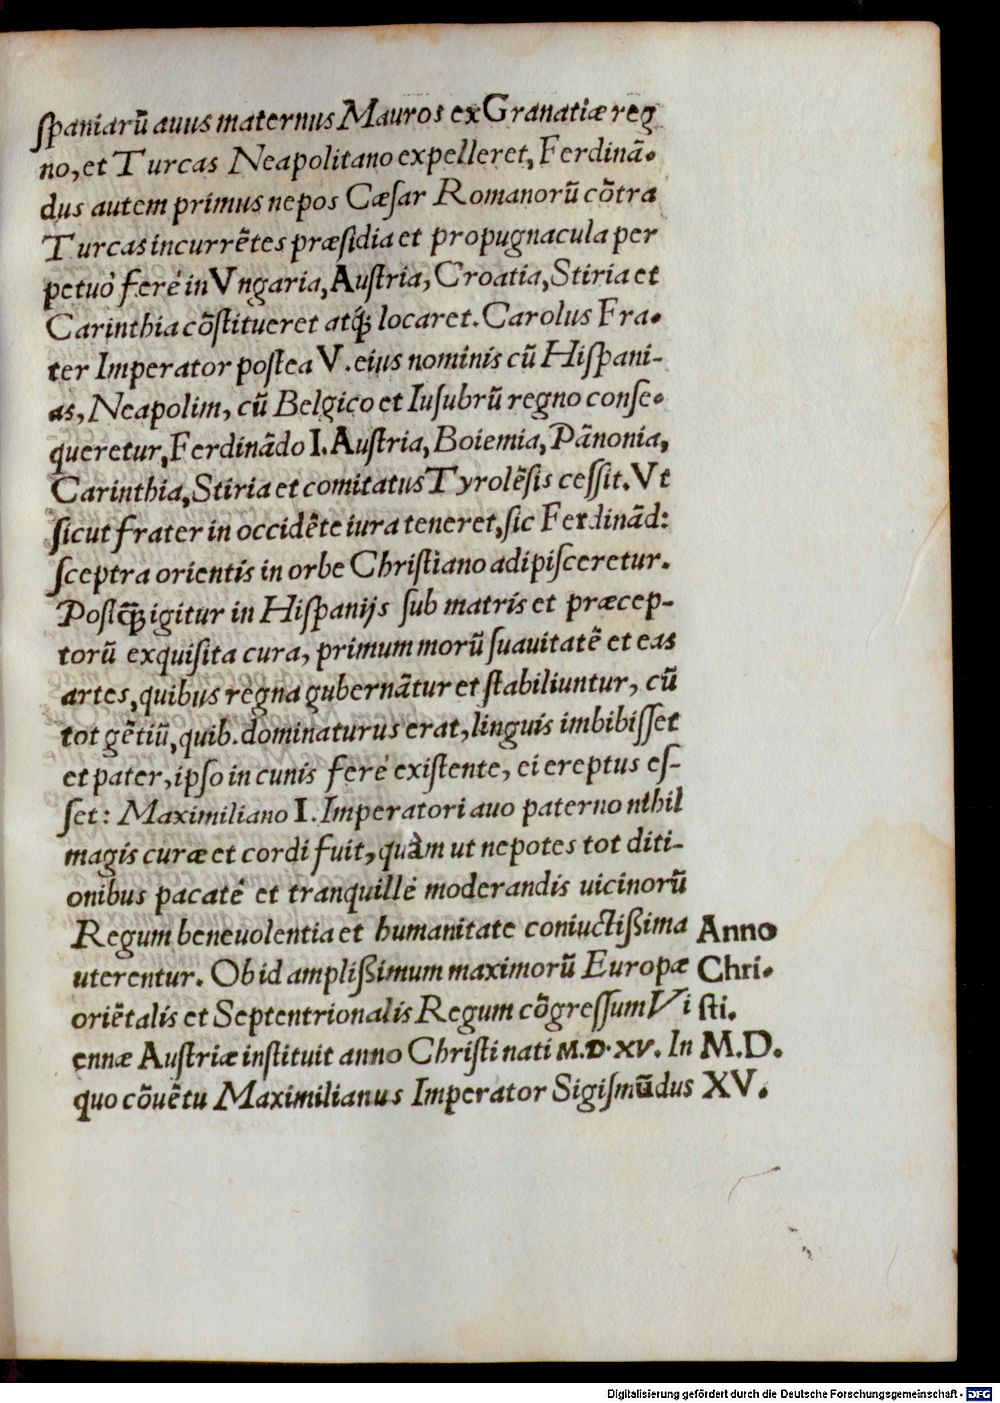 ſpaniarũ auus maternus Mauros ex Granatiæ reg
no, et Turcas Neapolitano expelleret, Ferdinã-
dus autem primus nepos Cæſar Romanorũ cõtra
Turcas incurrẽtes præſidia et propugnacula per
petuò ferè in Vngaria, Auſtria, Croatia, Stiria et
Carinthia cõſtitueret atq́ꝫ locaret. Carolus Fra-
ter Imperator poſtea V. eius nominis cũ Hiſpani-
as, Neapolim, cũ Belgico et Iuſubrũ regno conſe-
queretur, Ferdinãdo I. Auſtria, Boiemia, Pãnonia,
Carinthia, Stiria et comitatus Tyrolẽſis ceſſit. Vt
ſicut frater in occidẽte iura teneret, ſic Ferdinãd:
ſceptra orientis in orbe Chriſtiano adipiſceretur.
Poſtq̃ꝫ igitur in Hiſpanijs ſub matris et præcep-
torũ exquiſita cura, primum morũ ſuauitatẽ et eas
artes, quibus regna gubernãtur et ſtabiliuntur, cũ
tot gẽtiũ, quib. dominaturus erat, linguis imbibiſſet
et pater, ipſo in cunis ferè exiſtente, ei ereptus eſ-
ſet: Maximiliano I. Imperatori auo paterno nihil
magis curæ et cordi fuit, quàm ut nepotes tot diti-
onibus pacatè et tranquillè moderandis uicinorũ
Regum beneuolentia et humanitate coniuctiſsima
uterentur. Ob id ampliſsimum maximorũ Europæ
oriẽtalis et Septentrionalis Regum cõgreſſum Vi
ennæ Auſtriæ inſtituit anno Chriſti nati M.D.XV. In
quo cõuẽtu Maximilianus Imperator Sigiſmũdus
Anno
Chri-
ſti.
M.D.
XV.
Digitalisierung gefördert durch die Deutsche Forschungsgemeinschaft - DFG